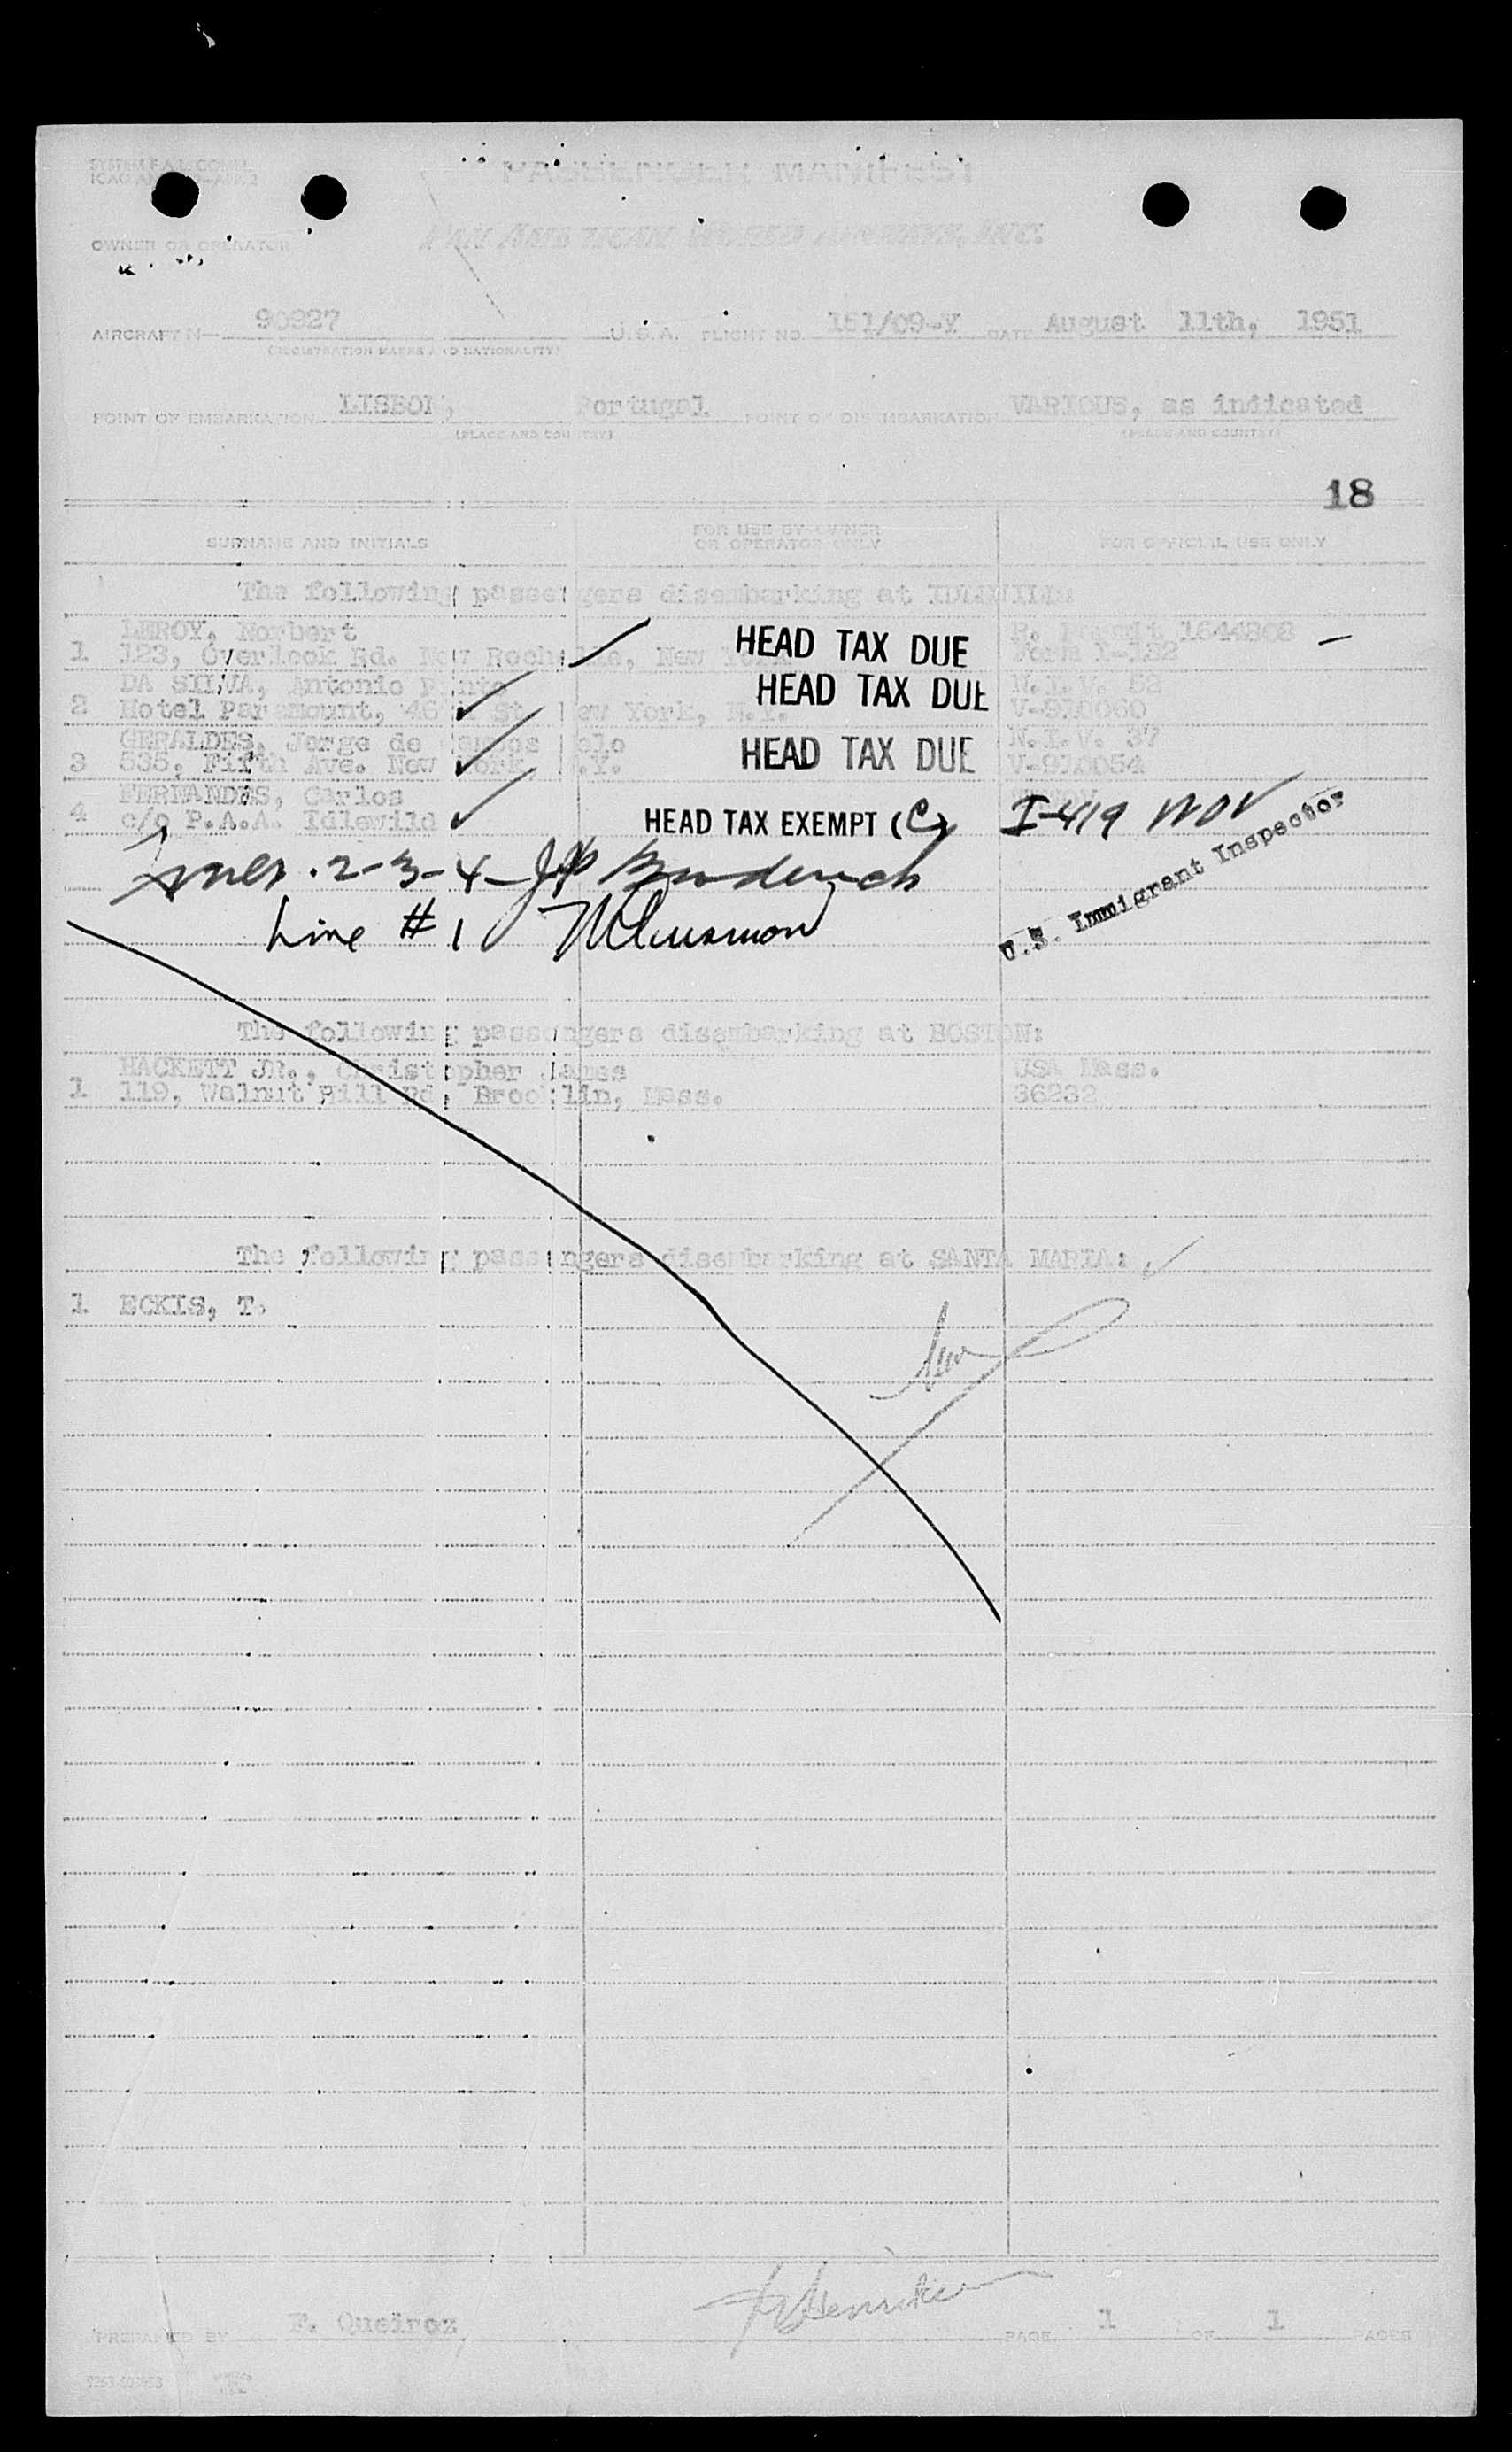 PASSENGER MANIFEST
OWNER OR OPERATOR PAN AMERICAN WORLD AIRWAYS, INC.
AIRCRAFT N— 90927 U.S.A. FLIGHT NO. 151/09-Y DATE August 11th, 1951
(REGISTRATION MARKS AND NATIONALITY)
POINT OF EMBARKATION LISBON, Portugal POINT OF DISEMBARKATION VARIOUS, as indicated
(PLACE AND COUNTRY) (PLACE AND COUNTRY)
18
SURNAME AND INITIALS FOR USE BY OWNER OR OPERATOR ONLY FOR OFFICIAL USE ONLY
The following passengers disembarking at IDLEWILD:
LEROY, Norbert HEAD TAX DUE R. Permit 1644808
1 123, Overlook Rd. New Rochelle, New York Form I-132
DA SILVA, Antonio Pinto HEAD TAX DUE N.I.V. 52
2 Hotel Paramount, 46th St. New York, N.Y. V-910060
GERALDES, Jorge de Campos Melo HEAD TAX DUE N.I.V. 37
3 535, Fifth Ave. New York, N.Y. V-910054
FERNANDES, Carlos
4 c/o P.A.A. Idlewild HEAD TAX EXEMPT (C) I-419 NOV
2-3-4-
Line # 1
U.S. Immigrant Inspector
The following passengers disembarking at BOSTON:
HACKETT JR., Christopher James USA Mass.
1 119, Walnut Hill Rd, Brooklin, Mass. 36232
The following passengers disembarking at SANTA MARIA:
1 ECKIS, T.
PREPARED BY F. Queiroz PAGE 1 OF 1 PAGES